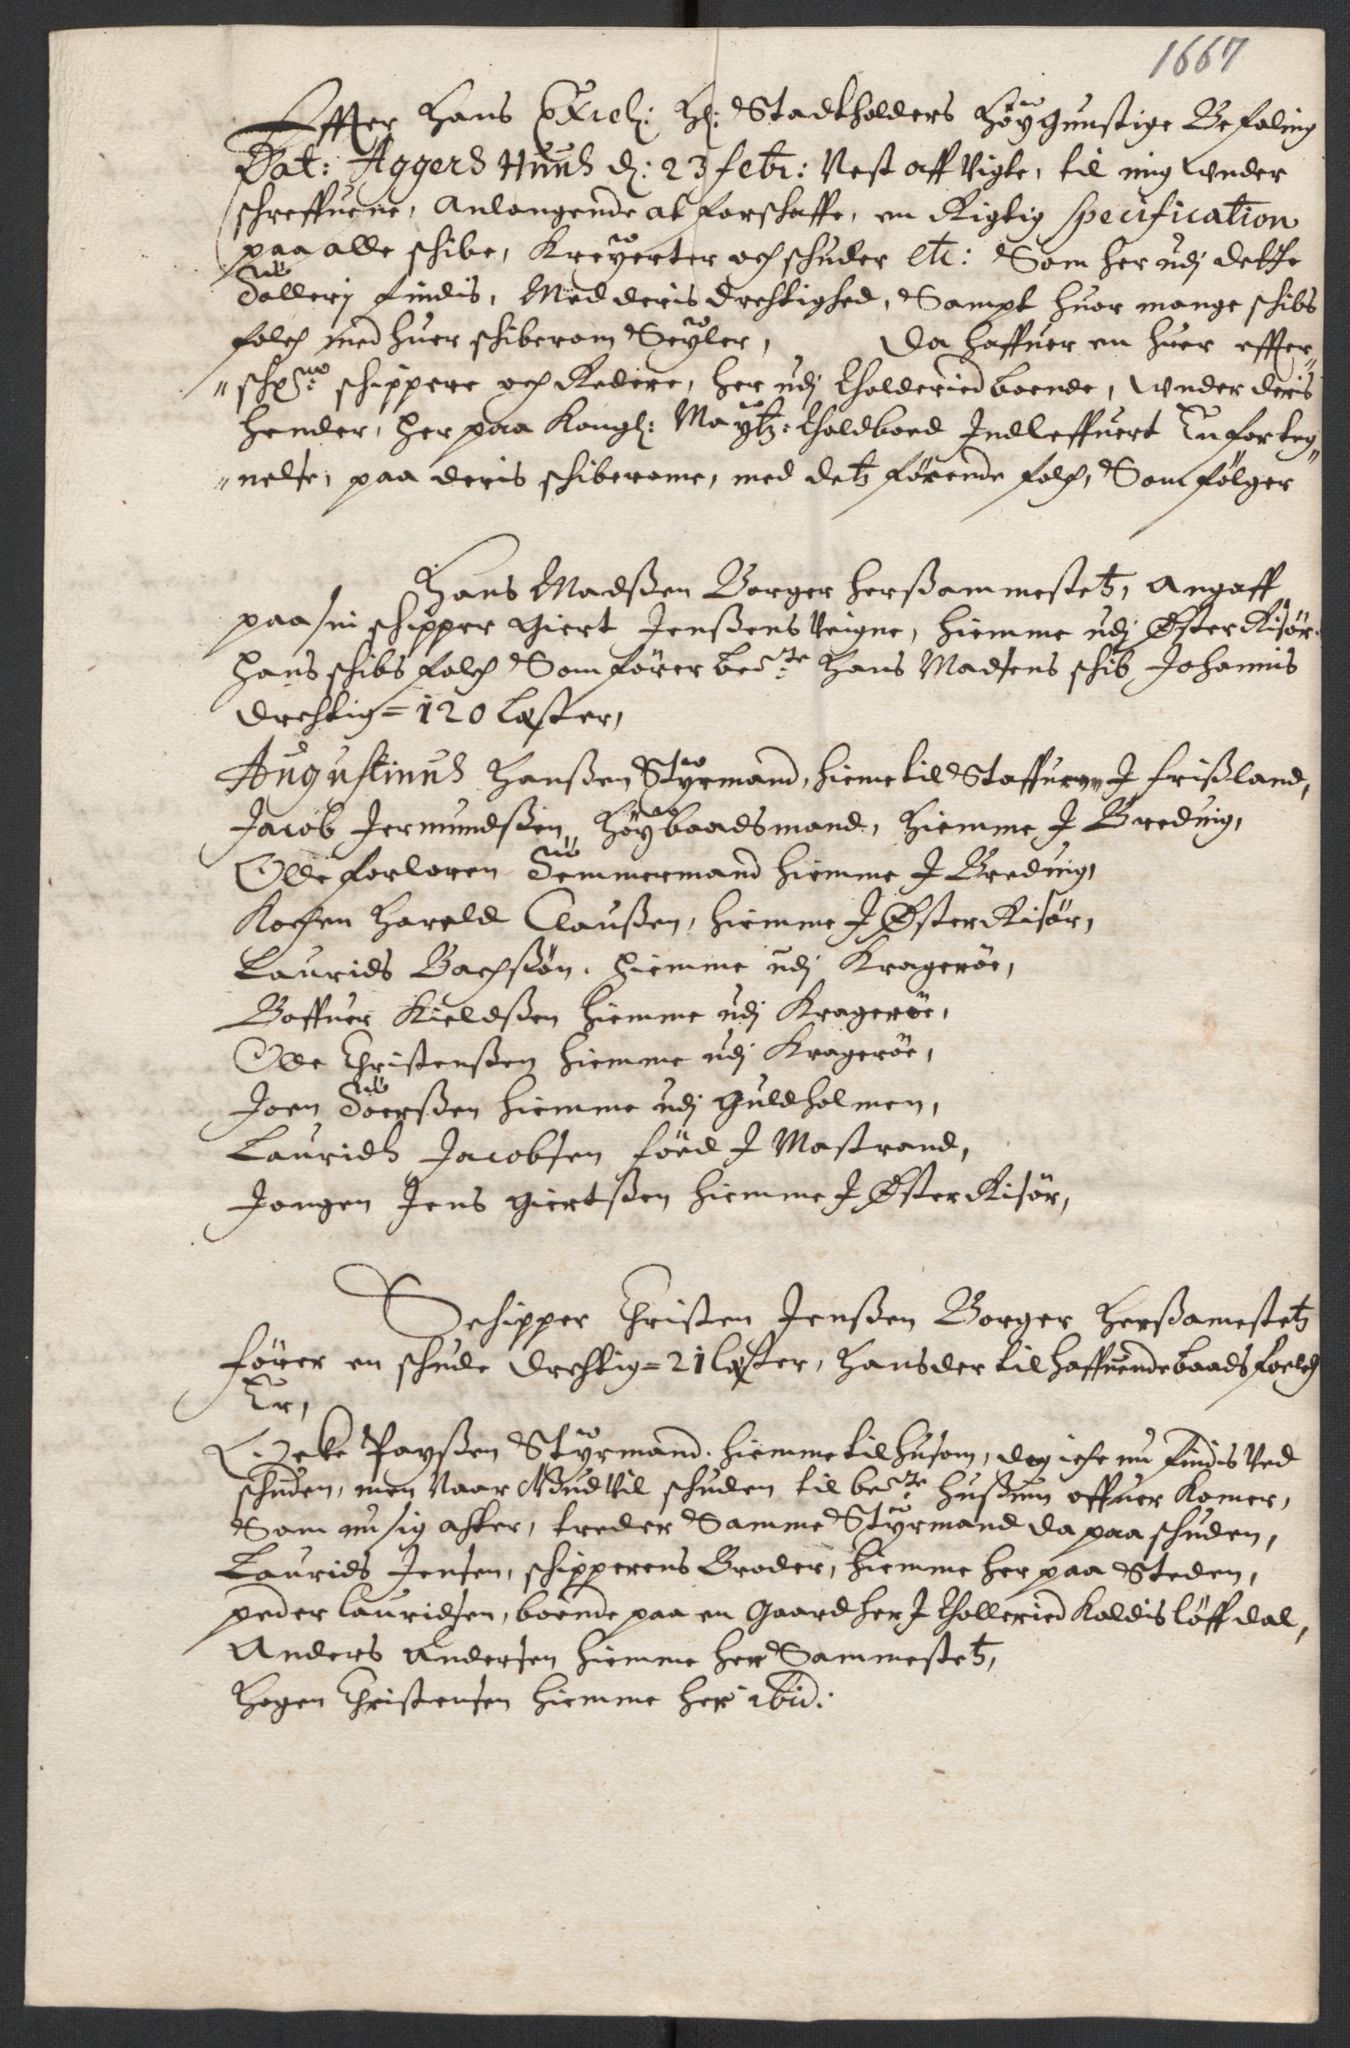 1667
Effter Hans Excel: Hr: Stadtholders Höÿgunstige Befaling
Dat: Aggers Huus d: 23 febr: Nest aff Vigte, til mig Under
schreffuene, Anlangende at forschaffe, en Rigtig Specification
paa alle schibe, Kreÿerter och schuder etc: Som her udj dette
Tollerj findis, Med deris drechtighed, Sampt huor mange schibs
folch med huer schiberom Seÿler, Da haffuer en huer effter„
„schr:ne schippere och Redere, her udj Tholderied boende, Under deris
hender, her paa Kongl: Maÿtz: Tholdboed Indleffuert En forteg„
„nelse, paa deris schiberome, med detz förende folch, Som fölger
Hans Madssen Borger herssammestetz, Angaff
paa sin schipper Giert Jenssens Veigne, hiemme udj Øster Risör.
Hans schibs folch Som förer bete Hans Madsens schib Johannis
drechtig = 120 Lester,
Augustinus Hanssen Stÿrmand, hieme til Staffuern J Frissland,
Jacob Jermundssen, Höÿbaadsmand, hiemme J Breduig,
Olle forloren Temmermand hiemme J Breduig,
Kochen Harald Claussen, hiemme J Øster Risör,
Laurids Bachssön, hiemme udj Krageröe,
Boffuer Kieldssen hiemme udj Krageröe,
Olle Christenssen hiemme udj Krageröe,
Joen Toerssen hiemme udj Guldholmen,
Lauridts Jacobsen föed J Mastrand,
Jongen Jens Giertssen hiemme J Øster Risör,
Schipper Christen Jenssen Borger Herssamestetz
förer en schude drechtig = 21 lester, Hans der til haffuende baadsfoelch
Er,
Payssen Stÿrmand, hiemme til Husom, dog iche nu findis Ved
schuden, men Naar Gud Vil schuden til bete Hussum offuer Komer,
Som nu sig achter, treder Samme Stÿrmand da paa schuden,
Laurids Jensen, schipperens Broder, hiemme her paa Steden,
Peder Lauridsen, boende paa en Gaard her J Tholleried Kaldis Löffdal,
Anders Andersen hiemme her Sammestetz,
Hagen Christensen hiemme her ibid: